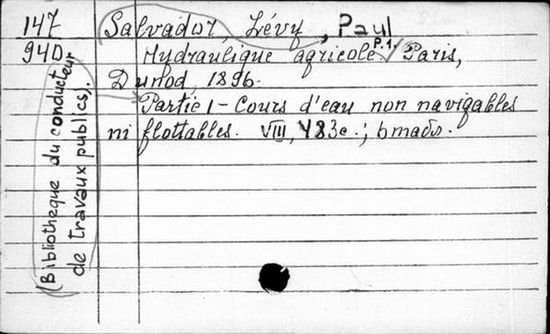 147
940
Salvador, Lévy, Paul
Hydraulique agricole P.1. Paris,
Dunod, 1896.
Partie 1 - Cours d'eau non navigables
ni flottables. VIII, 483c.;
(Bibliothèque du conducteur
de travaux publics).